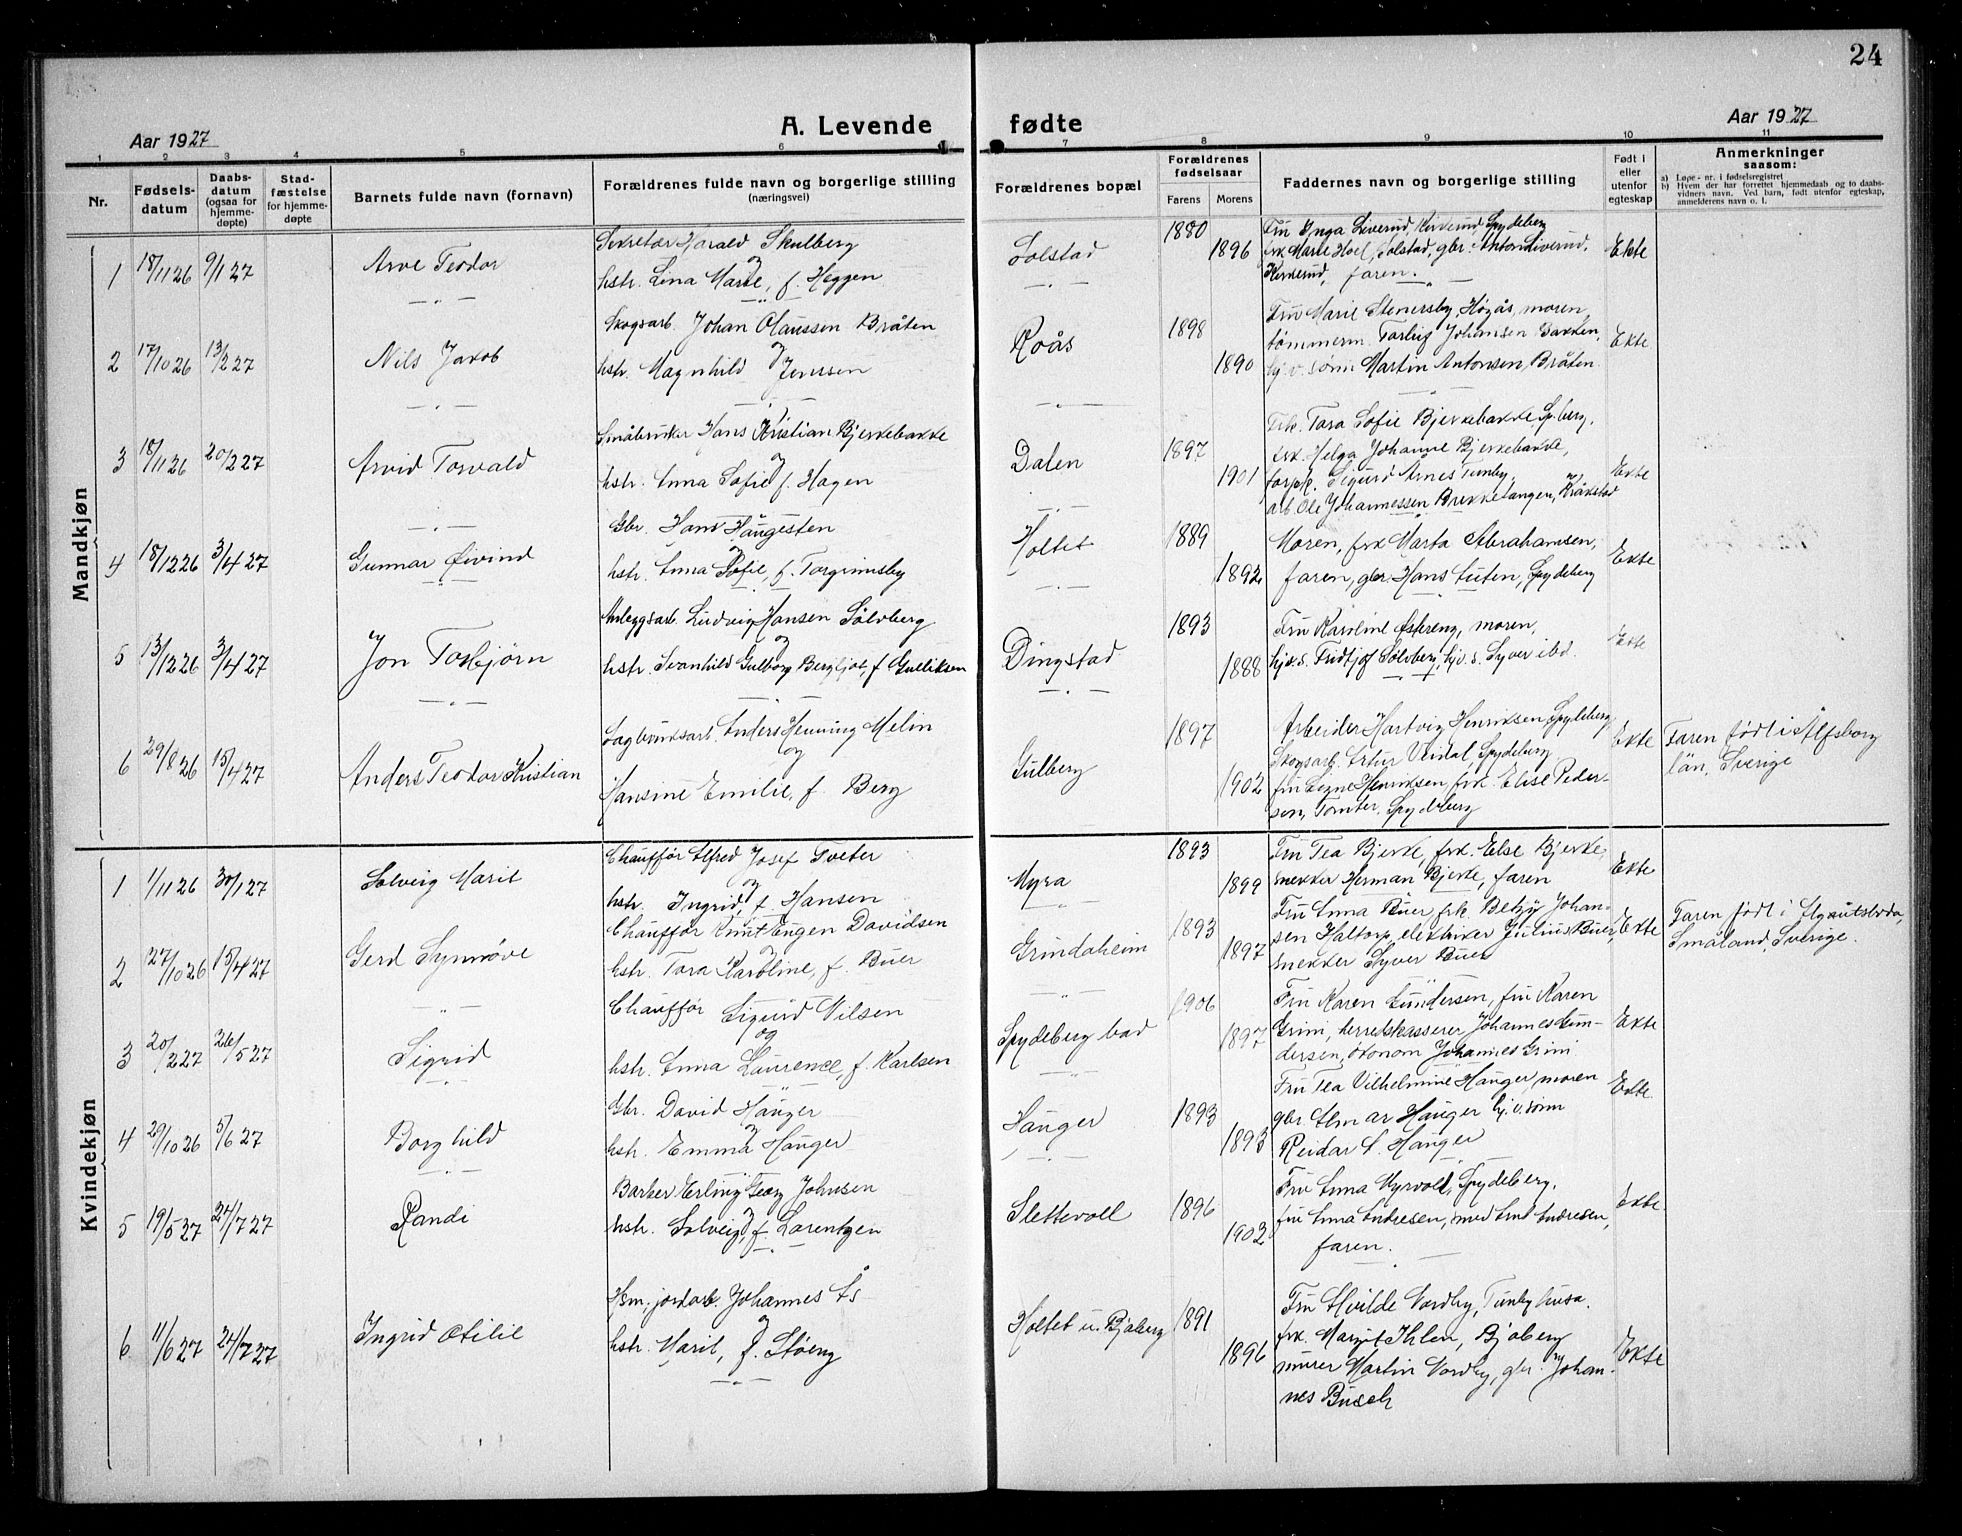 24
Aar 1927
A. Levende
fødte
Aar 1927
1 2 3 4 5 6 7 8 9 10 11
Nr.
Fødsels-
datum
Daabs-
datum
(ogsaa for
hjemme-
døpte)
Stad-
fæstelse
for hjemme-
døpte
Barnets fulde navn (fornavn)
Forældrenes fulde navn og borgerlige stilling
(næringsvei)
Forældrenes bopæl
Forældrenes
fødselsaar
Farens Morens
Faddernes navn og borgerlige stilling
Født i
eller
utenfor
egteskap
Anmerkninger
saasom:
a) Løpe-nr. i fødselsregistret
b) Hvem der har forrettet hjemmedaab og to daabs-
vidners navn. Ved barn, født utenfor egteskap,
anmelderens navn o. l.
Mandkjøn
1 18/11 26 9/1 27 Arve Teodor
Sekretær Harald Skulberg
og
hstr. Lina Marie, f. Heggen
Solstad 1880 1896
Fru Inga Liverud, Kirkerud Spydeberg
frk. Marie Hoel, Solstad, gbr. Anton Liverud,
Kirkerud, faren.
Ekte
2 17/10 26 13/2 27 Nils Jakob
Skogsarb. Johan Olaussen Bråten
og
hstr. Magnhild Jenssen
Roås 1898 1890
Fru Marie Stenersby, Høgås, moren,
tømmerm. Torleif Johansen Bakken,
hj.v. sønn Martin Antonsen Bråten
Ekte
3 18/11 26 20/2 27 Arvid Torvald
Småbruker Hans Kristian Bjerkebakke
og
hstr. Anna Sofie f. Hagen
Dalen 1897 1901
Frk. Tora Sofie Bjerkebakke Sp.berg,
frk. Helga Johanne Bjerkebakke,
forpk. Sigurd Arnes Tunby,
arb. Ole Johannessen Brekketangen, Kråkstad
Ekte
4 18/12 26 3/4 27 Gunnar Øivind
Gbr. Hans Haugesten
og
hstr. Anna Sofie, f. Torgrimsby
Holtet 1889 1892
Moren, frk Marta Abrahamsen,
faren, gbr. Hans Luten, Spydeberg
Ekte
5 13/12 26 3/4 27 Jon Torbjørn
Anleggsarb. Ludvig Hansen Sølvberg
og
hstr. Svanhild Gulborg Bergljot, f Gulliksen
Dingstad 1893 1888
Fru Karoline Askreng, moren,
hjv.s. Fridtjof Sølvberg, hjv. s. Syver ibd.
Ekte
6 29/8 26 15/4 27 Anders Teodor Kristian
Sagbruksarb. Anders Henning Melin
og
Hansine Emilie, f. Berg
Gulberg 1897 1902
Arbeider Hartvig Henriksen, Spydeberg,
Skogsarb. Artur Veidal, Spydeberg
fru Signe Henriksen, frk. Elise Peder-
sen, Tomter, Spydeberg
Ekte
Faren født i Älfsborg
län, Sverige
Kvindekjøn
1 1/11 26 30/1 27 Solveig Marit
Chauffør Alfred Josef Tveter
og
hstr. Ingrid, f. Hansen
Myra 1893 1899
Fru Tea Bjerke, frk. Else Bjerke,
snekker Herman Bjerke, faren
Ekte
2 27/10 26 15/4 27 Gerd Synnøve
Chauffør Knut Eugen Davidsen
og
hstr. Tora Karoline, f. Buer
Grindaheim 1893 1897
Fru Anna Buer, frk. Betzy Johan-
sen Haltorp, elektriker Julius Buer,
snekker Syver Buer
Ekte
Faren født i Älgautsboda,
Småland, Sverige.
3 20/2 27 26/5 27 Sigrid
Chauffør Sigurd Nilsen
og
hstr. Anna Laurence, f. Karlsen
Spydeberg bad 1906 1897
Fru Karen Gundersen, fru Karen
Grim, herredskasserer Johannes Gun-
dersen, økonom Johannes Grim
Ekte
4 29/10 26 5/6 27 Borghild
Gbr. David Hauger
og
hstr. Emma Hauger
Hauger 1893 1893
Fru Tea Vilhelmine Hauger, moren
gbr. Almar Hauger hj.v. sønn
Reidar A. Hauger
Ekte
5 19/5 27 24/7 27 Randi
Barker Erling Georg Johnsen
hstr. Solveig, f. Lorentzen
Slettevoll 1896 1902
Fru Anna Myrvold, Spydeberg,
fru Anna Andresen, Andresen,
faren.
Ekte
6 11/6 27 24/7 27 Ingrid Otilie
Hsm., jordarb. Johannes Ås
og
hstr. Marit, f. Støeng
Holtet u. Bjaberg 1891 1896
Fru Alvilde Nordby, Tunbyhusa.
frk. Margit Ihlen, Bjaberg
murer Martin Nordby, gbr. Johan-
nes Busch
Ekte